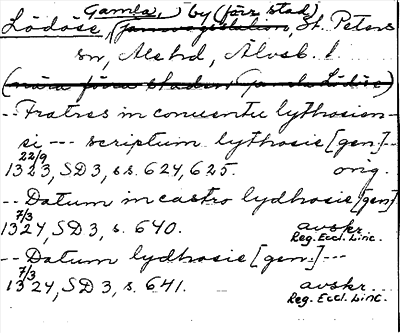 Gamla, by (förr stad)
Lödöse, (järnvägsstation, St. Peters
sn, Ale hd, Älvsb. l.
(nära förra staden Gamla Lödöse)
-- Fratres in conuentu lythosien-
si --- scriptum lythosie [gen] --
22/9
1323, SD 3, s. 624, 625. orig.
-- Datum in castro lydhosie [gen]
7/3
1324, SD 3, s. 640. avskr.
Reg. Eccl. Linc.
-- Datum lydhosie [gen.] ---
7/3
1324, SD 3, s. 641. avskr.
Reg. Eccl. Linc.